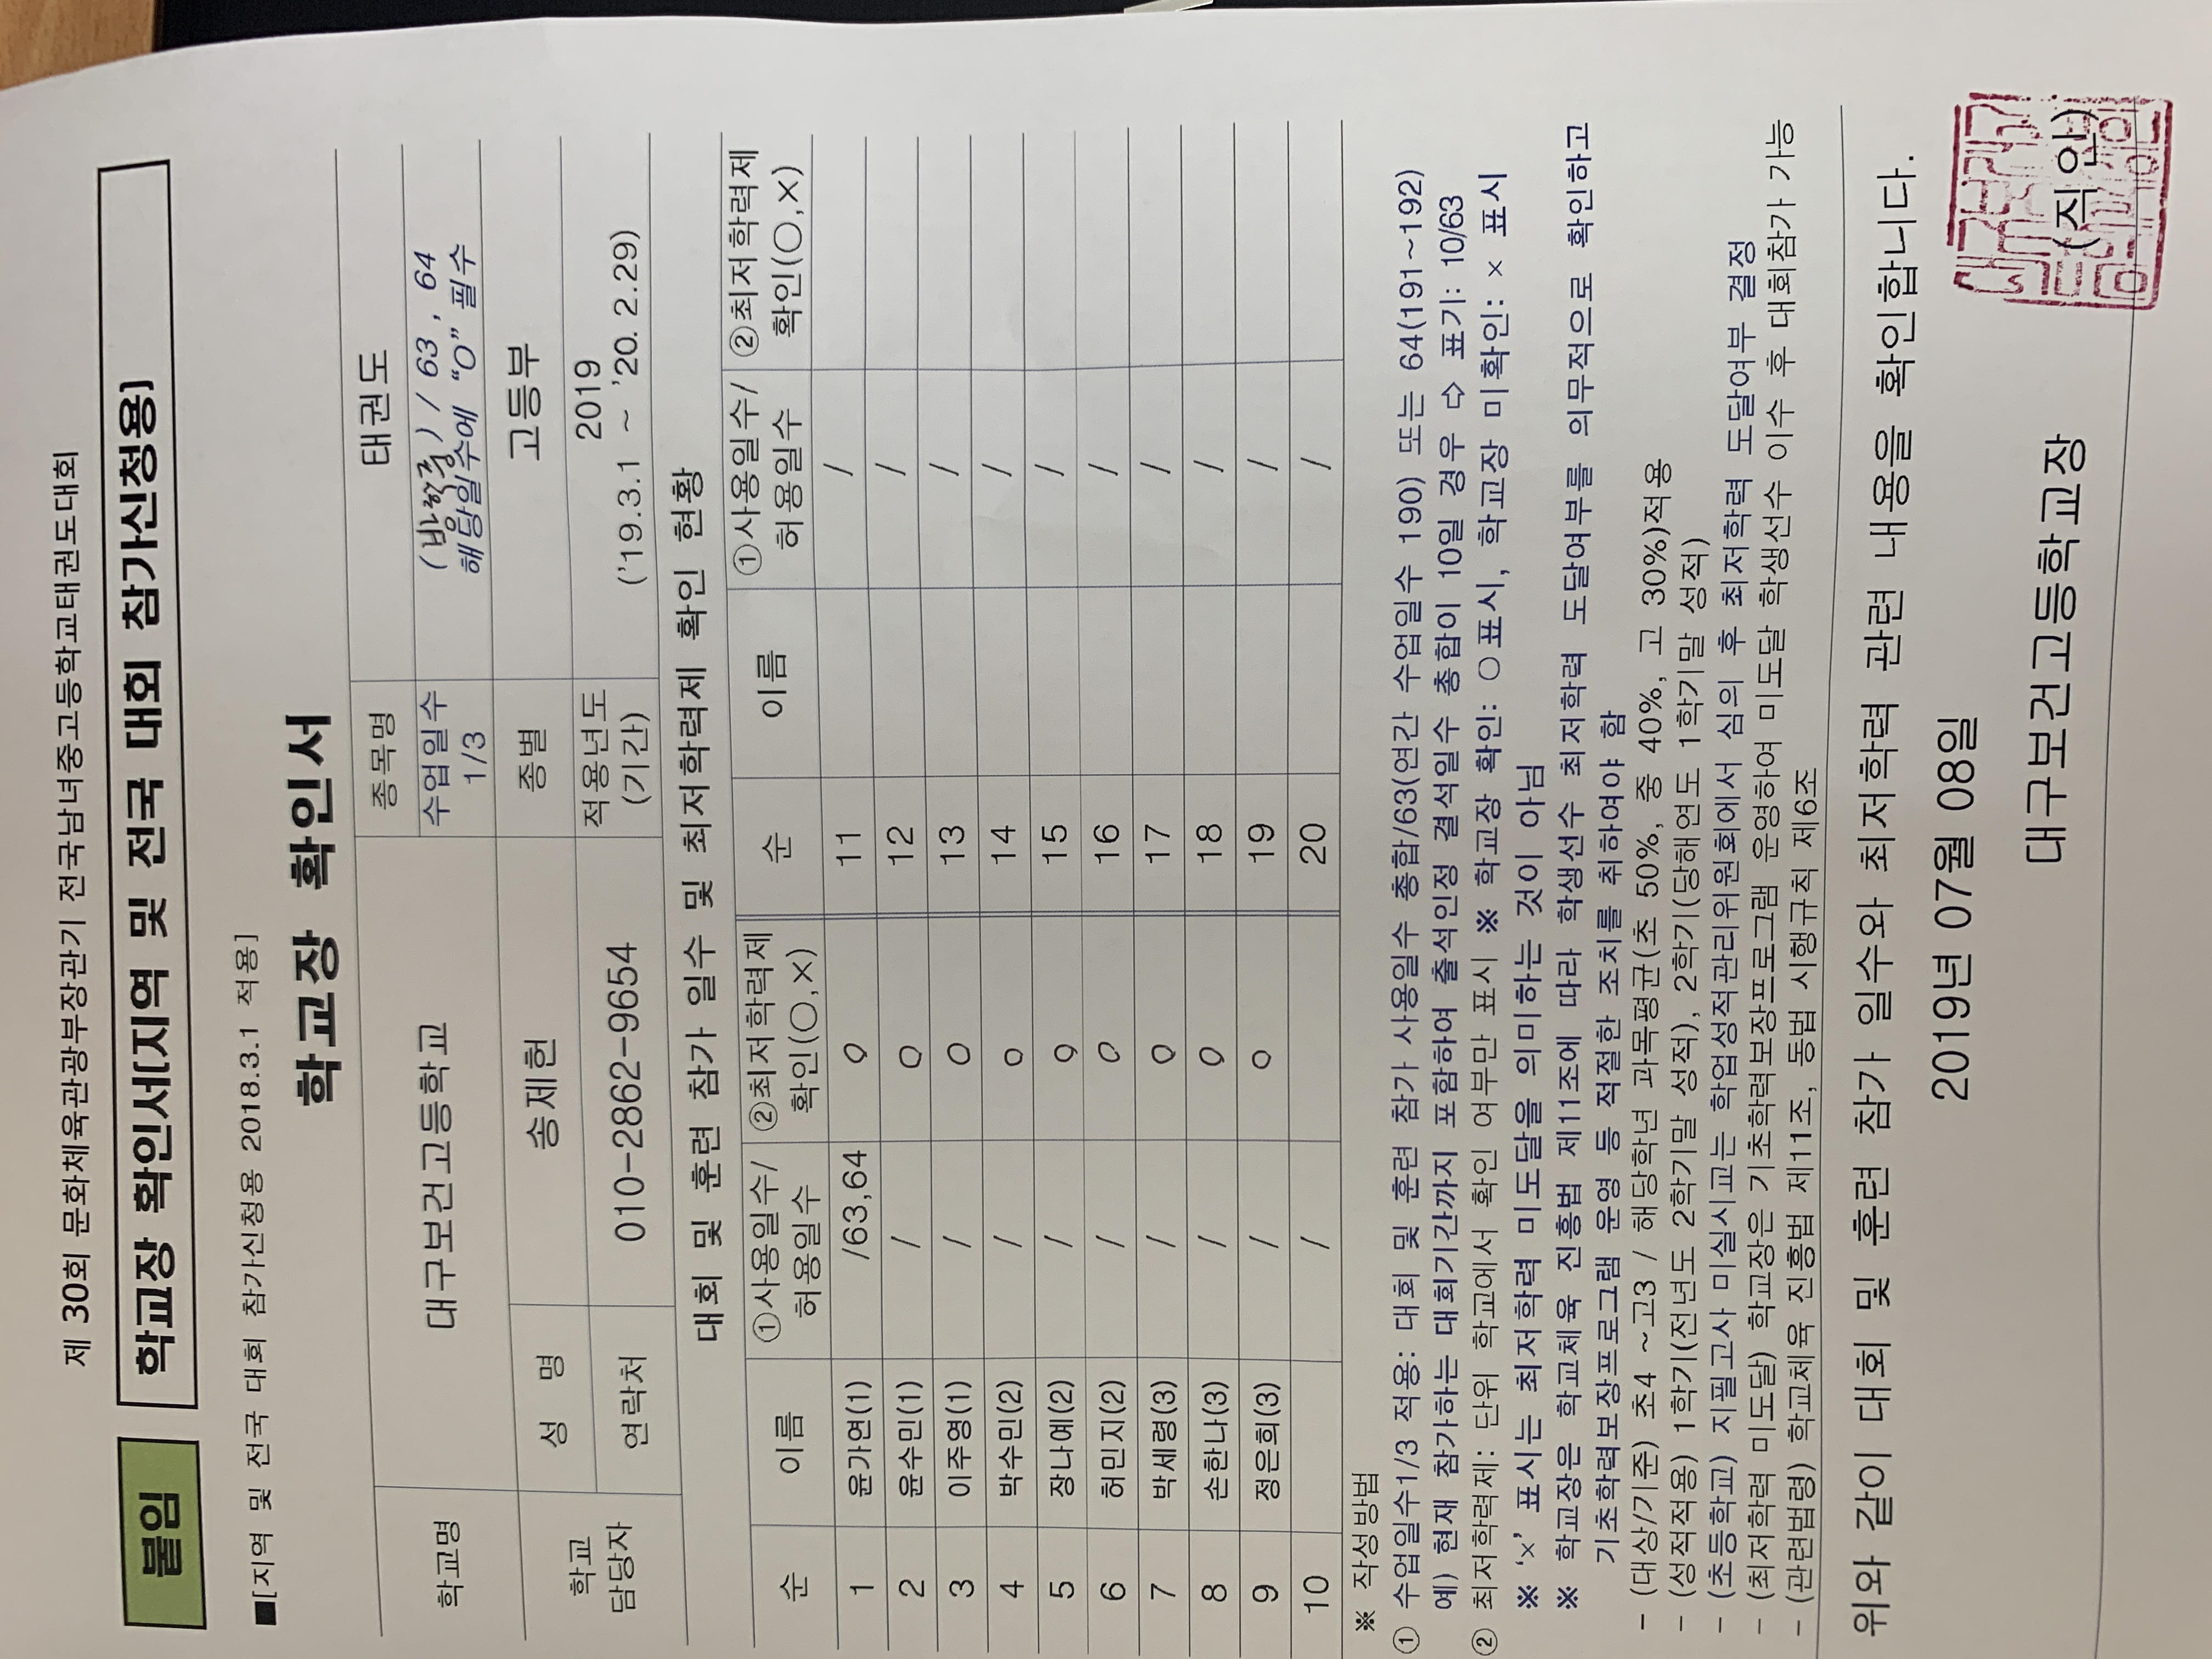 제 30회 문화체육관광부장관기 전국남녀중고등학교태권도대회
붙임 학교장 확인서[지역 및 전국 대회 참가신청용]
■[지역 및 전국 대회 참가신청용 2018.3.1 적용]
학교장 확인서
학교명 대구보건고등학교 종목명 태권도
수업일수 1/3 ( ) / 63, 64
해당일수에 "O" 필수
학교 담당자 성 명 송제헌 종별 고등부
연락처 010-2862-9654 적용년도 (기간) 2019
('19.3.1 ~ '20.2.29)
대회 및 훈련 참가 일수 및 최저학력제 확인 현황
순 이름 ①사용일수/ 허용일수 ②최저학력제 확인(○,×) 순 이름 ①사용일수/ 허용일수 ②최저학력제 확인(○,×)
1 윤가연(1) /63,64 O 11 /
2 윤수민(1) / O 12 /
3 이주영(1) / O 13 /
4 박수민(2) / O 14 /
5 장나예(2) / O 15 /
6 허민지(2) / O 16 /
7 박세령(3) / O 17 /
8 손한나(3) / O 18 /
9 정은희(3) / O 19 /
10 / 20 /
※ 작성방법
① 수업일수1/3 적용: 대회 및 훈련 참가 사용일수 총합/63(연간 수업일수 190) 또는 64(191~192)
예) 현재 참가하는 대회기간까지 포함하여 출석인정 결석일수 총합이 10일 경우 ⇨ 표기: 10/63
② 최저학력제: 단위 학교에서 확인 여부만 표시 ※ 학교장 확인: ○표시, 학교장 미확인: × 표시
※ '×' 표시는 최저학력 미도달을 의미하는 것이 아님
※ 학교장은 학교체육 진흥법 제11조에 따라 학생선수 최저학력 도달여부를 의무적으로 확인하고
기초학력보장프로그램 운영 등 적절한 조치를 취하여야 함
- (대상/기준) 초4 ~ 고3 / 해당학년 과목평균(초 50%, 중 40%, 고 30%)적용
- (성적적용) 1학기(전년도 2학기말 성적), 2학기(당해연도 1학기말 성적)
- (초등학교) 지필고사 미실시교는 학업성적관리위원회에서 심의 후 최저학력 도달여부 결정
- (최저학력 미도달) 학교장은 기초학력보장프로그램 운영하여 미도달 학생선수 이수 후 대회참가 가능
- (관련법령) 학교체육 진흥법 제11조, 동법 시행규칙 제6조
위와 같이 대회 및 훈련 참가 일수와 최저학력 관련 내용을 확인합니다.
2019년 07월 08일
대구보건고등학교장 (직인)